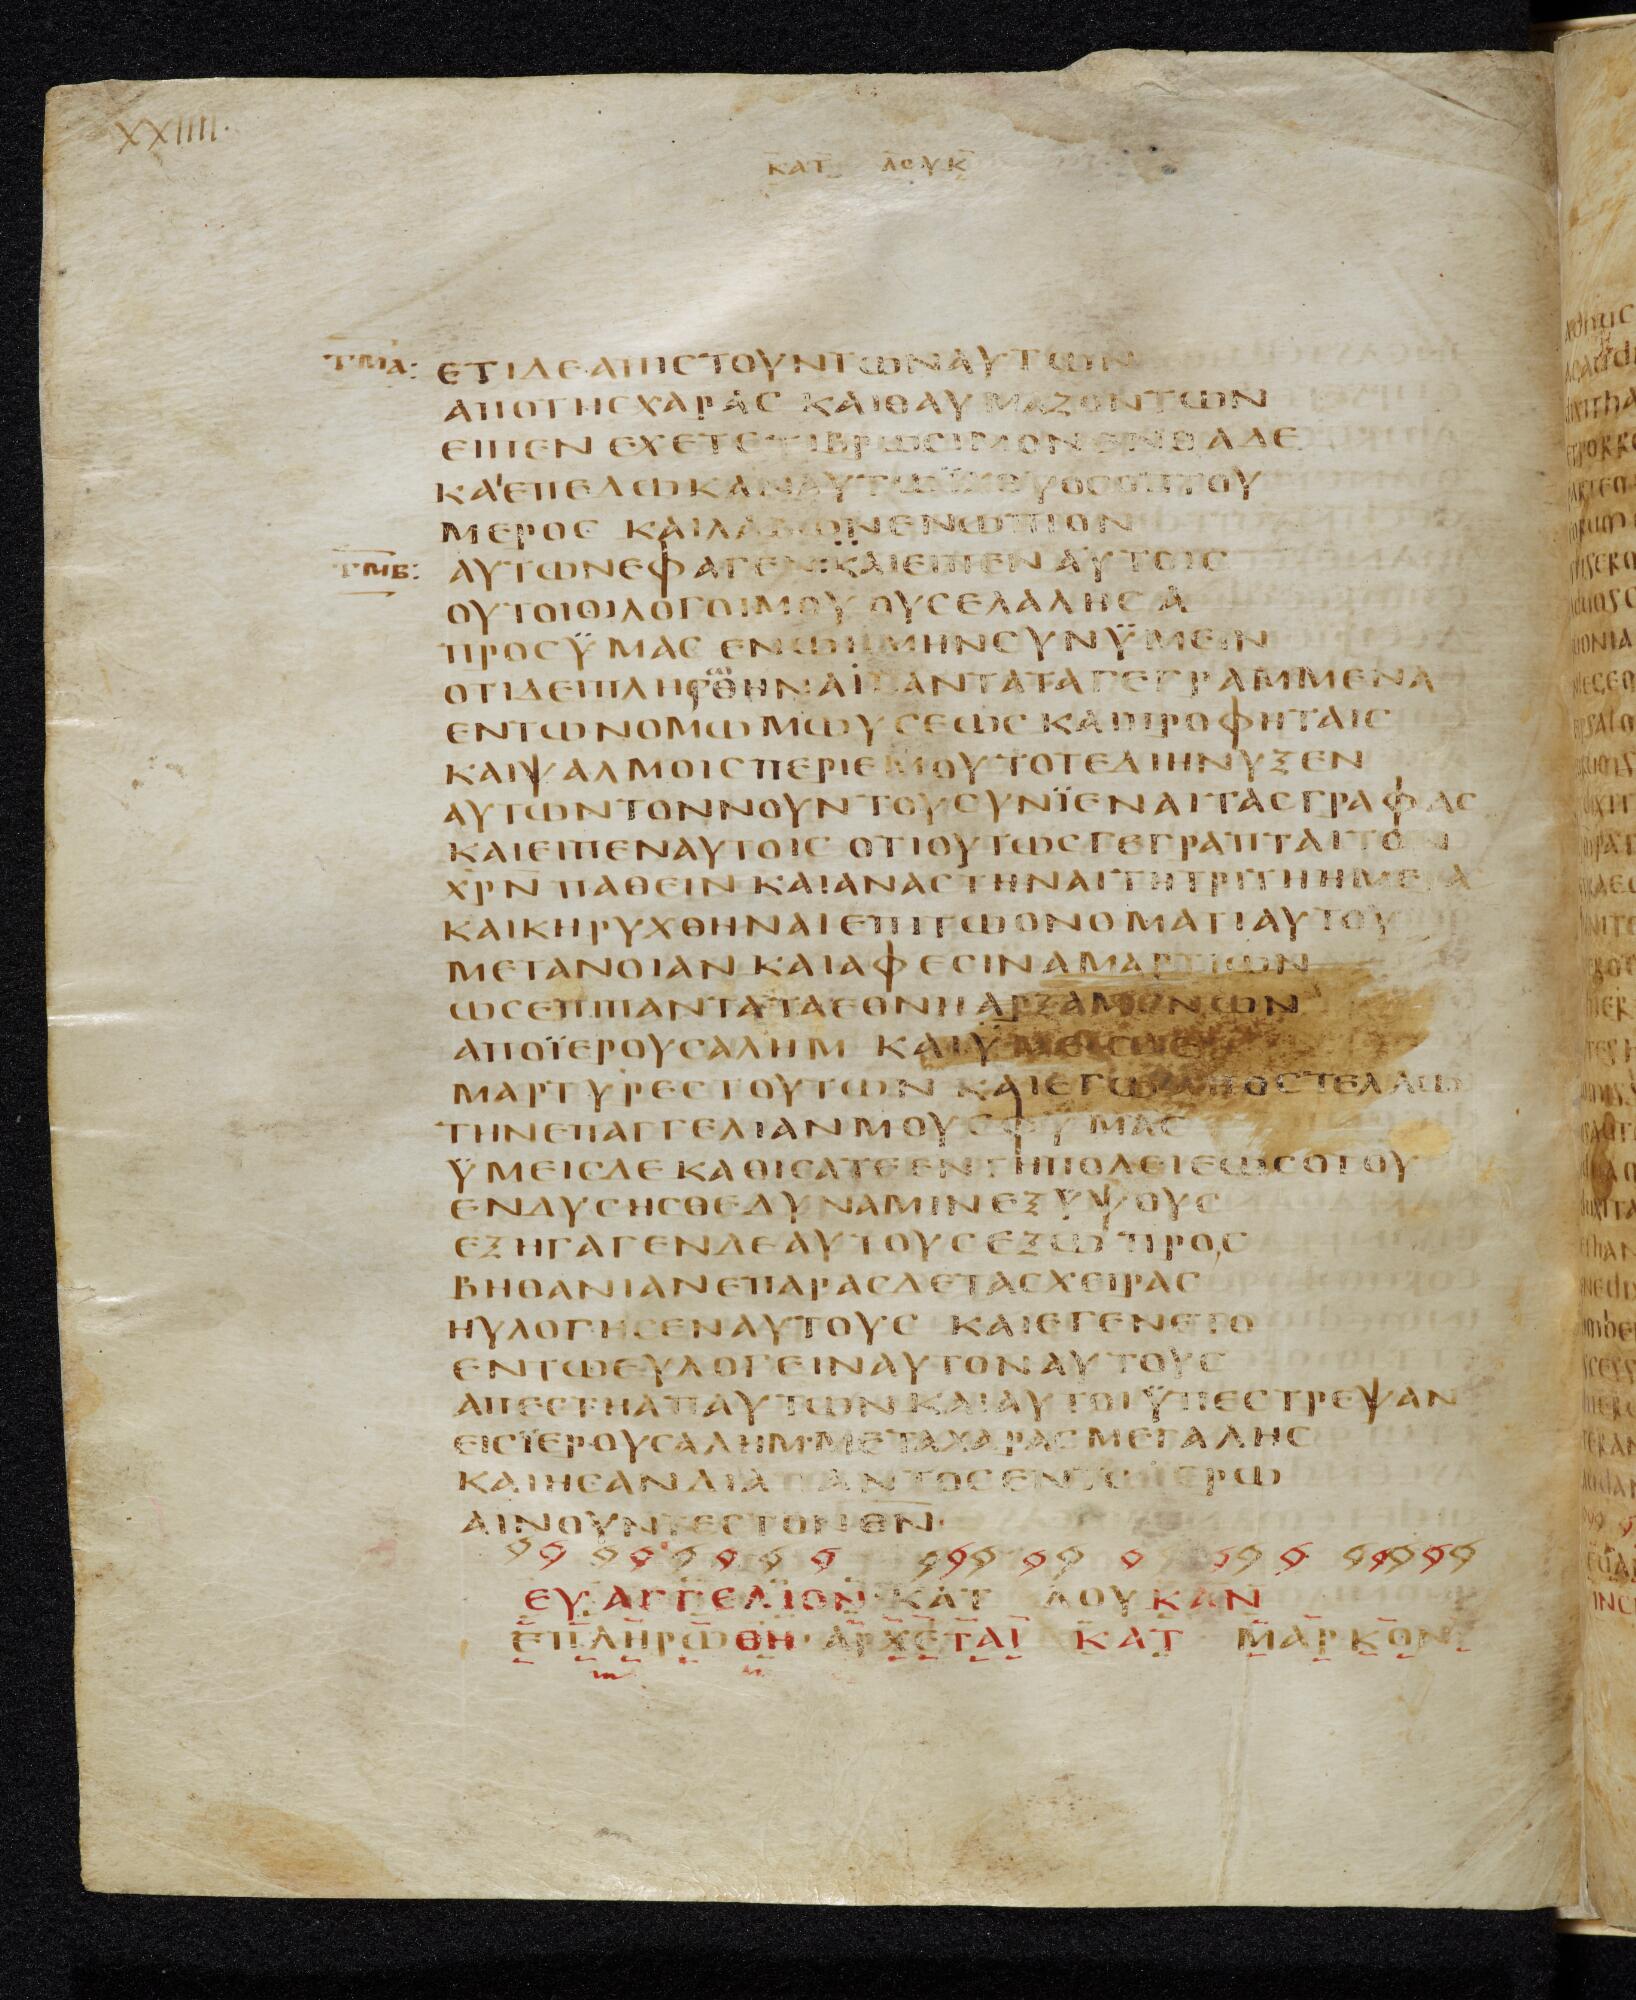 XXIIII.
ΚΑΤ ΛΟΥΚ
ΤΜΑ: ΕΤΙΔΕΑΠΙΣΤΟΥΝΤΩΝΑΥΤΩΝ
ΑΠΟΤΗΣΧΑΡΑΣ ΚΑΙΘΑΥΜΑΖΟΝΤΩΝ
ΕΙΠΕΝ ΕΧΕΤΕΤΙΒΡΩΣΙΜΟΝΕΝΘΑΔΕ
ΚΑΙΕΠΕΔΩΚΑΝΑΥΤΩΪΧΘΥΟΣΟΠΤΟΥ
ΜΕΡΟΣ ΚΑΙΛΑΒΩΝΕΝΩΠΙΟΝ
ΤΜΒ: ΑΥΤΩΝΕΦΑΓΕΝ:ΚΑΙΕΙΠΕΝΑΥΤΟΙΣ
ΟΥΤΟΙΘΙΛΟΓΟΙΜΟΥ ΟΥΣΕΛΑΛΗΣΑ
ΠΡΟΣΫΜΑΣ ΕΝΩΗΜΗΝΣΥΝΫΜΕΙΝ
ΟΤΙΔΕΙΠΛΗΡΩΘΗΝΑΙΠΑΝΤΑΤΑΓΕΓΡΑΜΜΕΝΑ
ΕΝΤΩΝΟΜΩΜΩΥΣΕΩΣ ΚΑΙΠΡΟΦΗΤΑΙΣ
ΚΑΙΨΑΛΜΟΙΣΠΕΡΙΕΜΟΥΤΟΤΕΔΙΗΝΥΞΕΝ
ΑΥΤΩΝΤΟΝΝΟΥΝΤΟΥΣΥΝΪΕΝΑΙΤΑΣΓΡΑΦΑΣ
ΚΑΙΕΙΠΕΝΑΥΤΟΙΣ ΟΤΙΟΥΤΩΣΓΕΓΡΑΠΤΑΙΤΟΝ
ΧΡΝ ΠΑΘΕΙΝ ΚΑΙΑΝΑΣΤΗΝΑΙΤΗΤΡΙΤΗΗΜΕΡΑ
ΚΑΙΚΗΡΥΧΘΗΝΑΙΕΠΙΤΩΟΝΟΜΑΤΙΑΥΤΟΥ
ΜΕΤΑΝΟΙΑΝ ΚΑΙΑΦΕΣΙΝΑΜΑΡΤΙΩΝ
ΩΣΕΠΙΠΑΝΤΑΤΑΕΘΝΗ ΑΡΞΑΜΕΝΩΝ
ΑΠΟΪΕΡΟΥΣΑΛΗΜ ΚΑΙΫΜΕΙΣΔΕ
ΜΑΡΤΥΡΕΣΤΟΥΤΩΝ ΚΑΙΕΓΩΑΠΟΣΤΕΛΛΩ
ΤΗΝΕΠΑΓΓΕΛΙΑΝΜΟΥΕΦΥΜΑΣ
ΫΜΕΙΣΔΕ ΚΑΘΙΣΑΤΕΕΝΤΗΠΟΛΕΙΕΩΣΟΤΟΥ
ΕΝΔΥΣΗΣΘΕΔΥΝΑΜΙΝΕΞΫΨΟΥΣ
ΕΞΗΓΑΓΕΝΔΕΑΥΤΟΥΣΕΞΩ ΠΡΟΣ
ΒΗΘΑΝΙΑΝΕΠΑΡΑΣΔΕΤΑΣΧΕΙΡΑΣ
ΗΥΛΟΓΗΣΕΝΑΥΤΟΥΣ ΚΑΙΕΓΕΝΕΤΟ
ΕΝΤΩΕΥΛΟΓΕΙΝΑΥΤΟΝΑΥΤΟΥΣ
ΑΠΕΣΤΗΑΠΑΥΤΩΝ ΚΑΙΑΥΤΟΙΫΠΕΣΤΡΕΨΑΝ
ΕΙΣΪΕΡΟΥΣΑΛΗΜ·ΜΕΤΑΧΑΡΑΣΜΕΓΑΛΗΣ
ΚΑΙΗΣΑΝΔΙΑΠΑΝΤΟΣΕΝΤΩΪΕΡΩ
ΑΙΝΟΥΝΤΕΣΤΟΝΘΝ·
ΕΥΑΓΓΕΛΙΟΝ·ΚΑΤ ΛΟΥΚΑΝ
ΕΠΛΗΡΩΘΗ·ΑΡΧΕΤΑΙ ΚΑΤ ΜΑΡΚΟΝ